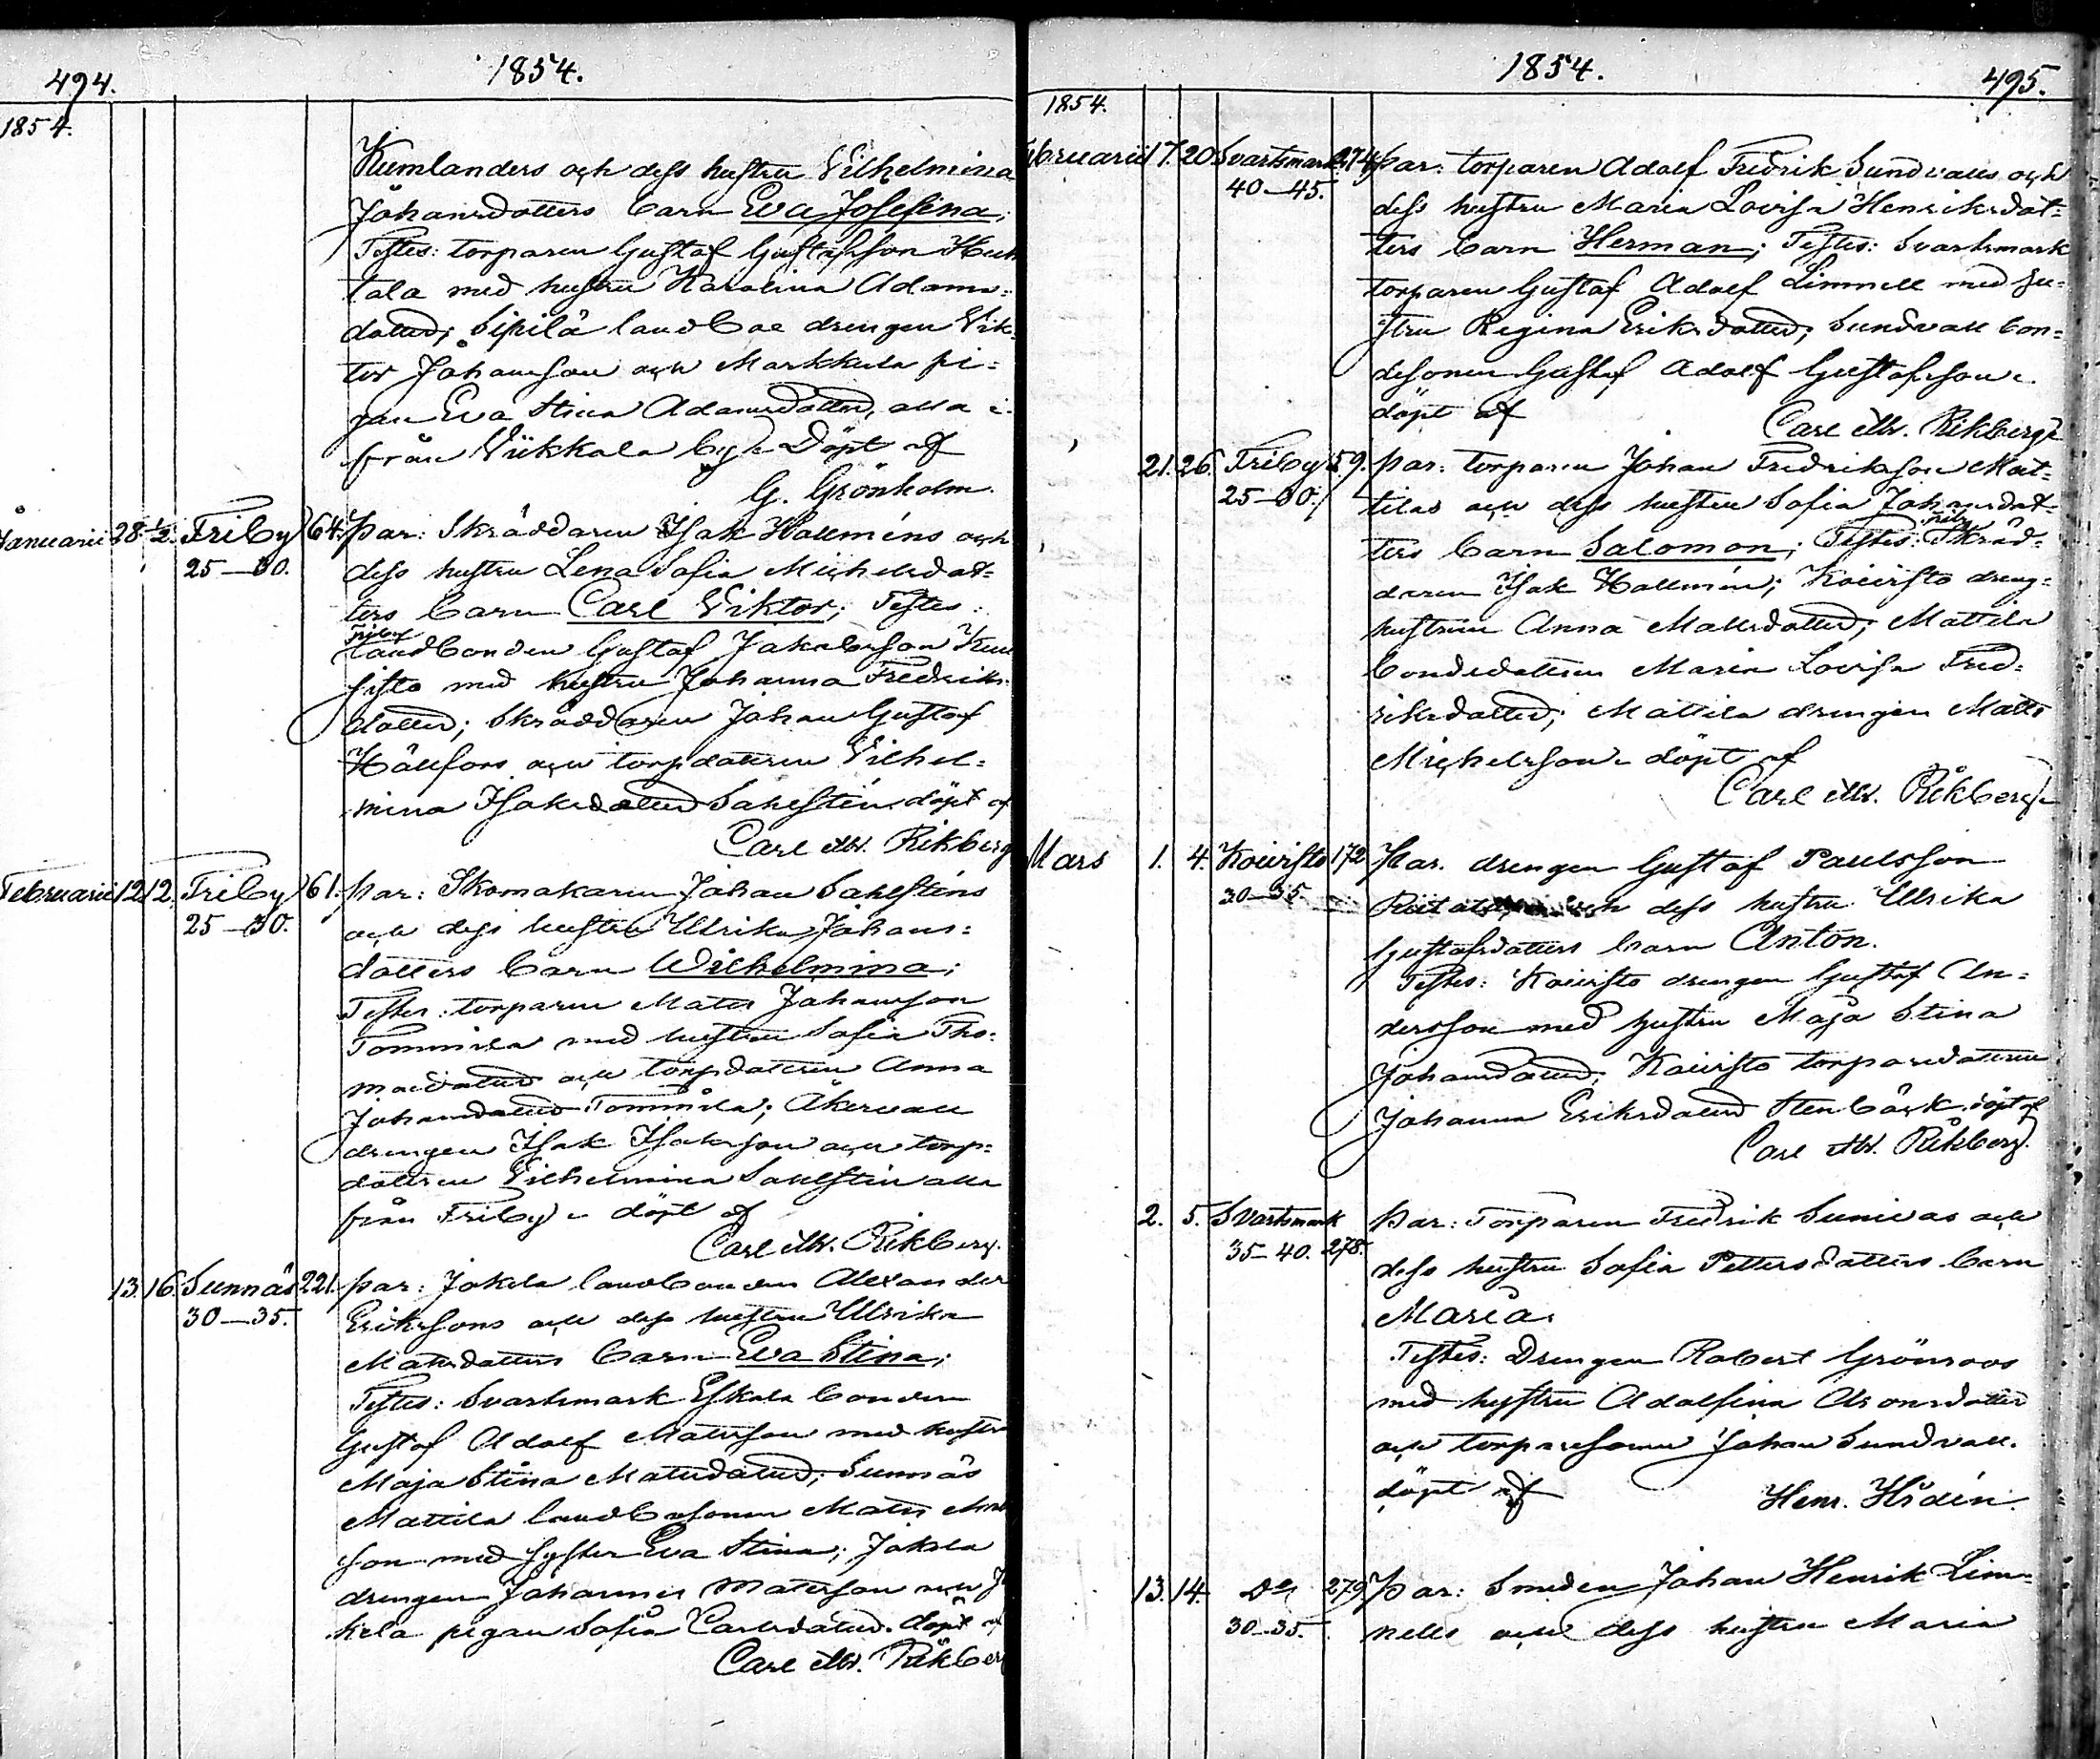 494.
1854.
1854.
Kumlanders och dess hustru Vilhelmina
Johansdotters barn Eva Josefina;
Testes: torparen Gustaf Gustafsson
tala med hustru Karolina Adams-
dotter; Sipilä landboe drengen Vik-
tor Johansson och Markkula pi-
gan Eva Stina Adamsdotter, alla i-
från Viikkala by. Döpt af
G. Grönholm.
Januarii 28. 1/2. Friby 64. par: Skräddaren Isak Hallméns och
25–30. dess hustru Lena Sofia Michelsdot-
ters barn Carl Viktor; Testes:
Friby
landbonden Gustaf Jakobsson Kuu
sisto med hustru Johanna Fredriks-
dotter; Skräddaren Johan Gustaf
Hällfors och torpdottren Vilhel-
mina Isaksdotter Sahlstén döpt af
Carl W. Rikberg
Februarii 12. 12. Friby 61. par: Skomakaren Johan Sahlsténs
25–30. och dess hustru Ulrika Johans-
dotters barn Wilhelmina;
Testes: torparen Mats Johansson
Tommila med hustru Sofia Tho-
masdotter och torpdottren Anna
Johansdotter Tommila; Åkervall
drengen Isak Isaksson och torp-
dottren Vilhelmina Sahlstén alla
från Friby. döpt af
Carl W. Rikberg.
13. 16. Sunnäs 221. par: Jokela landbonden Alexander
30–35. Erikssons och dess hustru Ulrika
Matsdotters barn Eva Stina;
Testes: Svartsmark Eskola bonden
Gustaf Adolf Matsson med hustru
Maja Stina Matsdotter; Sunnäs
Mattila landbosonen Mats
son med syster Eva Stina; Jokela
drengen Johannes Matsson och Jo
kela pigan Sofia Carlsdotter. döpt af
Carl W. Rikberg
1854.
495.
1854.
Februarii 17. 20. Svartsmark 274. par: torparen Adolf Fredrik Sundvalls och
40–45. dess hustru Maria Lovisa Henriksdot-
ters barn Herman; Testes: Svartsmark
torparen Gustaf Adolf Limnell med hu-
stru Regina Eriksdotter; Sundvall bon-
desonen Gustaf Adolf Gustafsson.
döpt af
Carl W. Rikberg
21. 26. Friby 59. par: torparen Johan Fredriksson Mat-
25–30. tilas och dess hustru Sofia Johansdot-
Friby
ters barn Salomon; Testes: Skräd-
daren Isak Hallmén; Koivisto dreng-
hustrun Anna Matsdotter; Mattila
bondedottren Maria Lovisa Fred-
riksdotter; Mattila drengen Matts
Michelsson. döpt af
Carl W. Rikberg
Mars 1. 4. Koivisto 172 Par. drengen Gustaf Paulsson
30–35. och dess hustru Ulrika
Gustafsdotters barn Anton.
Testes: Koivisto drengen Gustaf An-
dersson med hustru Maja Stina
Johansdotter; Koivisto torparedottren
Johanna Eriksdotter Stenbäck. döpt af
Carl W. Rikberg.
2. 5. Svartsmark par: Torparen Fredrik Sunivas och
35–40. 278. dess hustru Sofia Pettersdotters barn
Maria.
Testes: Drengen Robert Grönroos
med hustru Adolfina Aronsdotter
och torparesonen Johan Sundvall.
döpt af
Henr. Hidén.
13. 14. Do 279 par: Smeden Johan Henrik Lim-
30–35. nells och dess hustru Maria